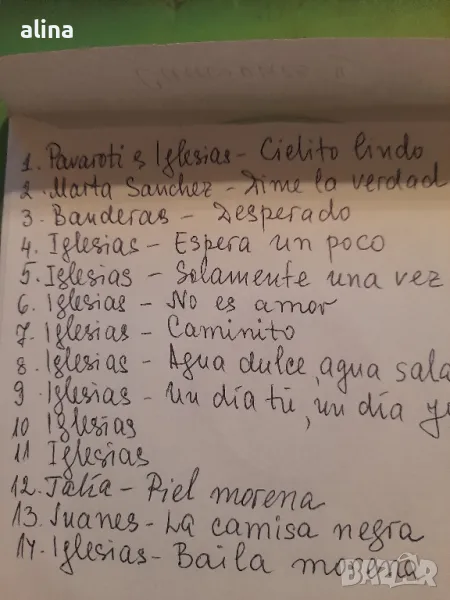 alina
1. Pavaroti & Iglesias - Cielito lindo
2. Marta Sanchez - Dime la verdad
3. Banderas - Desperado
4. Iglesias - Espera un poco
5. Iglesias - Solamente una vez
6. Iglesias - No es amor
7. Iglesias - Caminito
8. Iglesias - Agua dulce, agua sala
9. Iglesias - Un día tú, un día
10 Iglesias
11 Iglesias
12. Talía - Piel morena
13. Juanes - La camisa negra
14. Iglesias - Baila morena
BAZAR